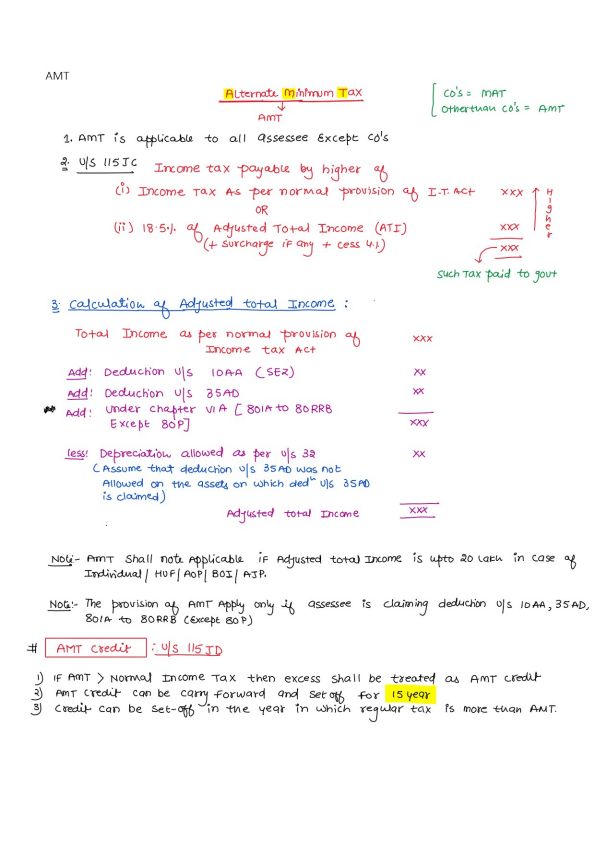 AMT
Alternate Minimum Tax
AMT
Co's = MAT
Otherthan Co's = AMT
1. AMT is applicable to all assessee Except Co's
2. U/S 115JC Income tax payable by higher of
(i) Income Tax As per normal provision of I.T. Act xxx
OR
(ii) 18.5% of Adjusted Total Income (ATI) xxx
(+ Surcharge if any + cess 4%) xxx
Higher
Such Tax paid to govt
3. Calculation of Adjusted total Income :
Total Income as per normal provision of xxx
Income tax Act
Add: Deduction U/S 10AA (SEZ) xx
Add: Deduction U/S 35AD xx
Add: Under chapter VIA [80IA to 80RRB
Except 80P] xxx
less: Depreciation allowed as per U/S 32 xx
(Assume that deduction U/S 35AD was not
Allowed on the assets on which dedn U/S 35AD
is claimed)
Adjusted total Income xxx
Note:- AMT Shall note Applicable if Adjusted total Income is upto 20 lakh in case of
Individual / HUF / AOP / BOI / AJP.
Note:- The provision of AMT Apply only if assessee is claiming deduction U/S 10AA, 35AD,
80IA to 80RRB (Except 80P)
# AMT Credit : U/S 115JD
1) IF AMT > Normal Income Tax then excess shall be treated as AMT credit
2) AMT Credit can be carry forward and set off for 15 year
3) Credit can be set-off in the year in which regular tax is more than AMT.